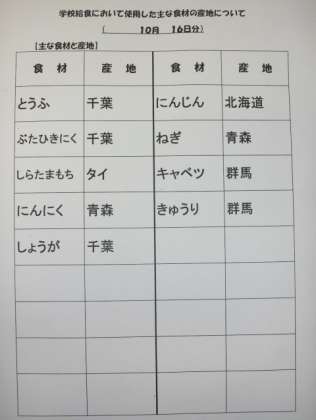 学校給食において使用した主な食材の産地について
( 10月 16日分)
【主な食材と産地】
食材 産地 食材 産地
とうふ 千葉 にんじん 北海道
ぶたひきにく 千葉 ねぎ 青森
しらたまもち タイ キャベツ 群馬
にんにく 青森 きゅうり 群馬
しょうが 千葉